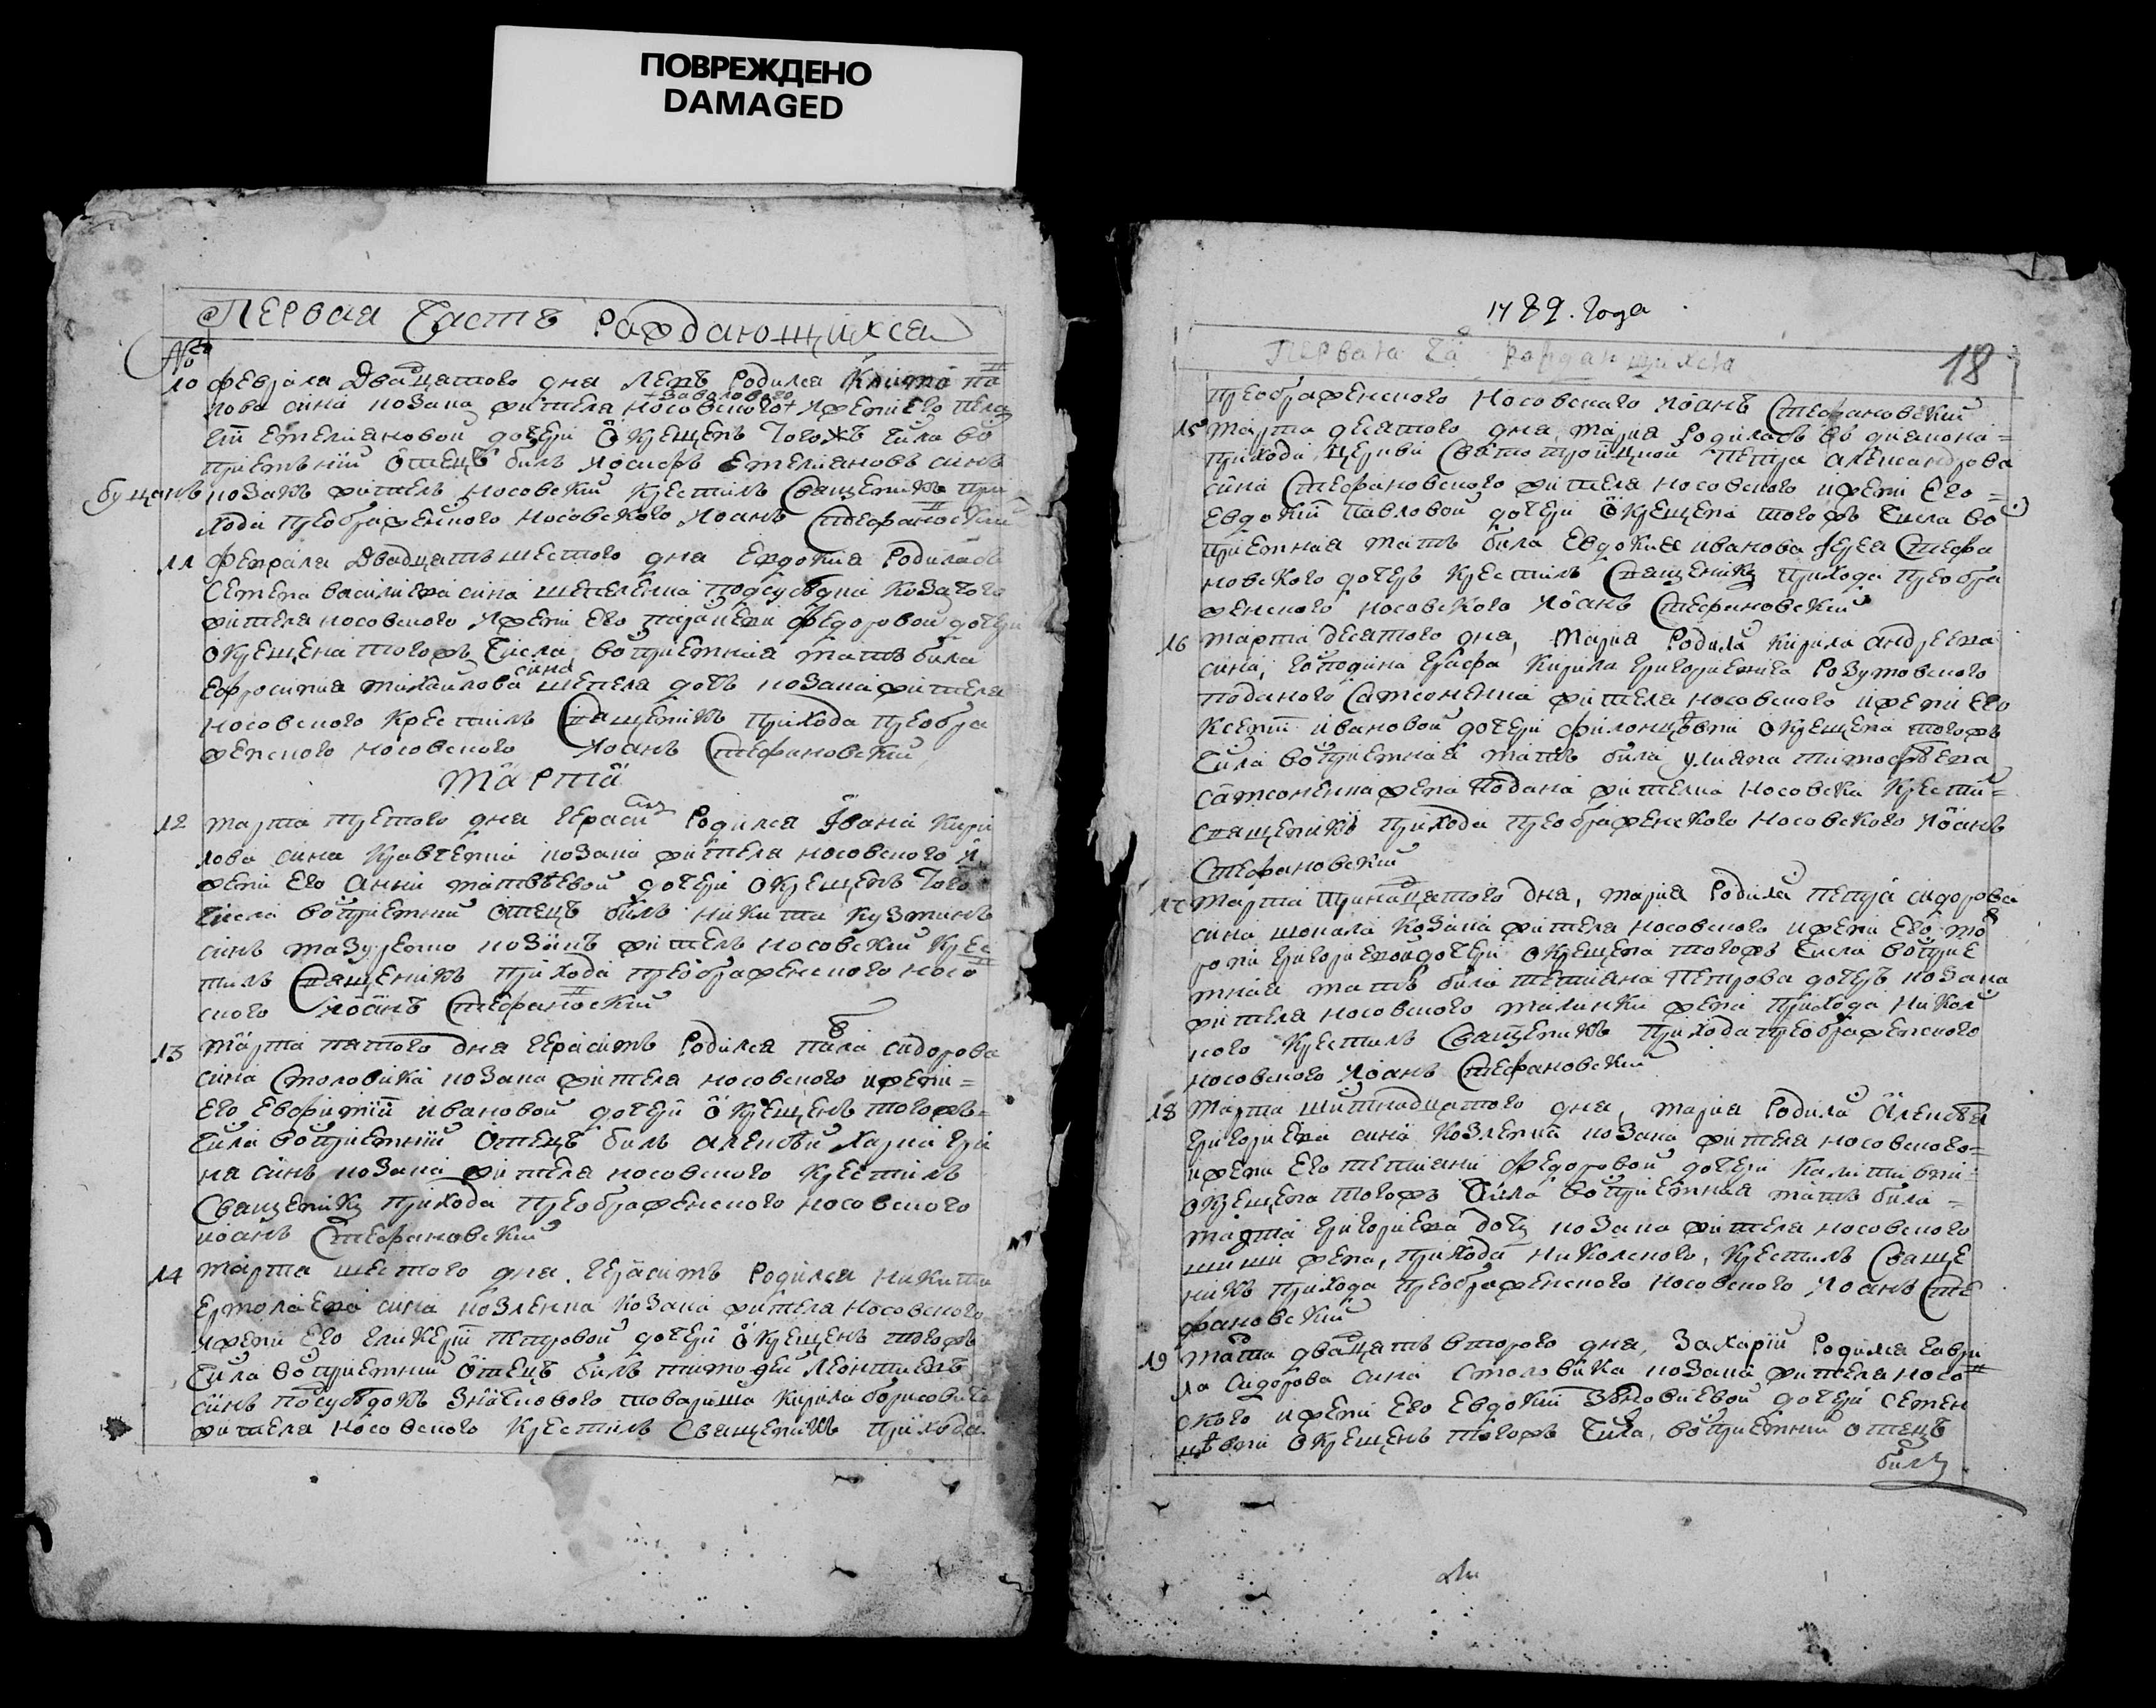 ПОВРЕЖДЕНО
DAMAGED
Первая Часть Раждающихся
№
10 Февраля Двадцятого дня Левъ Родился Климa Па
Заваловаго
лова сина козака жителя Носовского и жени Его Пела
гіи Емелиановой дочери окрещенъ Того жъ Числа во
приемъній отецъ билъ Иосифъ Емелиановъ синъ
буцанъ козакъ житель Носовский крестилъ Священикъ при
хода преображенского Носовского Иоанъ Стефановский
11 Февраля Двадцать шестого дня Евдокия Родилась
Семена василиева сина шепеленка подсуседка козачого
жителя носовского и жени Его Федоровой дочери
окрещена того жъ Числа воприемная мать била
сина
Ефросиния михайлова шепеля дочъ козака жителя
носовского крестилъ Священикъ прихода преобра
женского носовского Иоанъ Стефановский
Марта
12 марта третого дня Герасим Родился Ивана Кири
лова сина кравченка козака жителя носовского и
жени Его Анни матвеевой дочери окрещенъ Того
Числа воприемний отецъ билъ Никита Кузминъ
синъ мазуренко козакъ житель носовский крес
тилъ Священикъ прихода преображенского носо
ского Иоанъ Стефановский
13 Марта пятого дня Герасимъ Родился павла сидорова
сина Столовика козака жителя носовского и жени
Его Евфимии ивановой дочери окрещенъ того жъ
Числа воприемний отецъ билъ алексей
на синъ козака жителя носовского крестилъ
Священикъ прихода преображенского носовского
иоанъ Стефановский
14 Марта шестого дня Герасимъ Родился Никити
Ермолаева сина козленка козака жителя Носовского
и жени Его Гликерии петровой дочери окрещенъ того жъ
Числа воприемний отецъ билъ тимофей Леонтиевъ
синъ посуседокъ значкового товариша Кирила борисовича
жителя носовского крестилъ Священикъ прихода
1789. Года
Первая Ча раждающихся
18
преображенского Носовского Иоанъ Стефановский
15 Марта десятого дня, мария Родилась во диакона
прихода церкви Святотройцкой Петра александрова
сина Стефановского жителя носовского и жени Его
Евдокии павловой дочери окрещена того жъ Числа во
приемная мать била Евдокия иванова Иерея Стефа
новского дочеръ крестилъ Священикъ прихода преобра
женского носовского Иоанъ Стефановский
16 марта десятого дня, Мария Родила Кирила андреева
сина, господина графа Кирила Григориевича Розумовского
поданого Самсоненка жителя носовского и жени его
Ксении ивановой дочери окрещена того жъ
Числа воприемная мать била улияна тимофеева
самсоненка жена подана жителка Носовска крести
Священикъ прихода преображенского Носовского Иоанъ
Стефановский
17 Марта тринацятого дня, мария Родила петра сидорова
сина шопала козака жителя носовского и жени Его мо
рони григориевой дочери окрещена того жъ Числа воприе
мная мать била тетияна Петрова дочеръ козака
жителя носовского малинки жена прихода Никол
кого крестилъ Священикъ прихода преображенского
носовского Иоанъ Стефановский
18 Марта дня, мария Родила алексея
григориева сина козленка козака жителя носовского
и жени Его тетияни Федоровой дочери
окрещена того жъ Числа воприемная мать била
марта григориева дочъ козака жителя носовского
жена, прихода николского, крестилъ Свяще
никъ прихода преображенского носовского Иоанъ Сте
фановский
19 Марта двадцать второго дня, Захарий Родился гаври
ла Сидорова сина Столовика козака жителя носо
ского и жени Его Евдокии Зеновиевой дочери семен
цевни окрещенъ того жъ Числа, воприемний отецъ
билъ